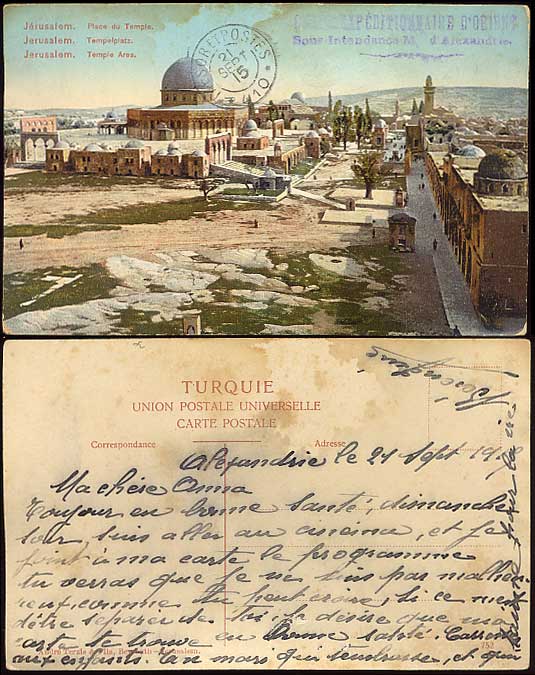 Jérusalem. Place du Temple.
Jerusalem. Tempelplatz.
Jerusalem. Temple Area.
EXPÉDITIONNAIRE D'ORIENT
Sous-Intendance M d'Alexandrie
ET POSTES
21
SEPT
15
TURQUIE
UNION POSTALE UNIVERSELLE
CARTE POSTALE
Correspondance Adresse
Alexandrie le 21 Sept 19
Ma chère Anna
Toujour en bonne santé, dimanche
soir suis aller au cinéma, et je
joint à ma carte le programme
tu verras que je ne suis pas malheu
reux comme tu peut croire, si ce n'es
d'être séparer de toi, je désire que ma
carte te trouve en bonne santé. Caresse
aux enfants. Ton mari qui t'embrasse, et qui
André Terzis & Fils, Beyrouth-Jérusalem. 752